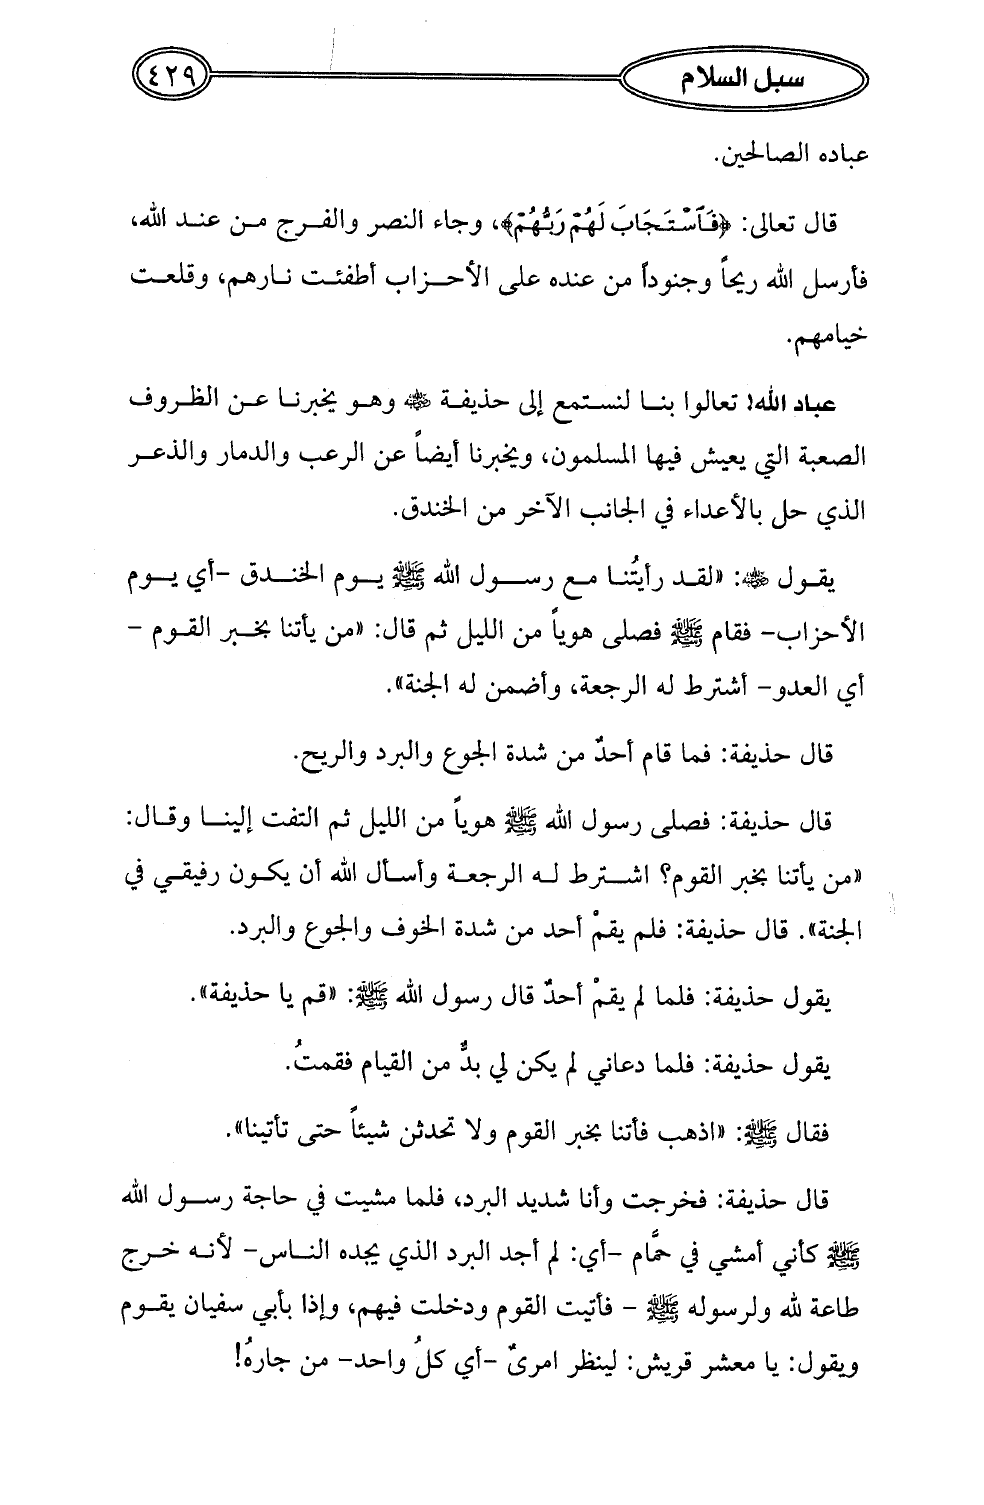 سبل السلام
٤٢٩
عباده الصالحين.
قال تعالى: ﴿فَٱسْتَجَابَ لَهُمْ رَبُّهُمْ﴾، وجاء النصر والفرج من عند الله،
فأرسل الله ريحاً وجنوداً من عنده على الأحزاب أطفئت نارهم، وقلعت
خيامهم.
عباد الله! تعالوا بنا لنستمع إلى حذيفة ﵁ وهو يخبرنا عن الظروف
الصعبة التي يعيش فيها المسلمون، ويخبرنا أيضاً عن الرعب والدمار والذعر
الذي حل بالأعداء في الجانب الآخر من الخندق.
يقول ﵁: «لقد رأيتُنا مع رسول الله ﷺ يوم الخندق -أي يوم
الأحزاب- فقام ﷺ فصلى هوياً من الليل ثم قال: «من يأتنا بخبر القوم -
أي العدو- أشترط له الرجعة، وأضمن له الجنة».
قال حذيفة: فما قام أحدٌ من شدة الجوع والبرد والريح.
قال حذيفة: فصلى رسول الله ﷺ هوياً من الليل ثم التفت إلينا وقال:
«من يأتنا بخبر القوم؟ اشترط له الرجعة وأسأل الله أن يكون رفيقي في
الجنة». قال حذيفة: فلم يقمْ أحد من شدة الخوف والجوع والبرد.
يقول حذيفة: فلما لم يقمْ أحدٌ قال رسول الله ﷺ: «قم يا حذيفة».
يقول حذيفة: فلما دعاني لم يكن لي بدٌّ من القيام فقمتُ.
فقال ﷺ: «اذهب فأتنا بخبر القوم ولا تحدثن شيئاً حتى تأتينا».
قال حذيفة: فخرجت وأنا شديد البرد، فلما مشيت في حاجة رسول الله
ﷺ كأني أمشي في حمَّام -أي: لم أجد البرد الذي يجده الناس- لأنه خرج
طاعة لله ولرسوله ﷺ - فأتيت القوم ودخلت فيهم، وإذا بأبي سفيان يقوم
ويقول: يا معشر قريش: لينظر امرئٌ -أي كلُ واحد- من جارهُ!